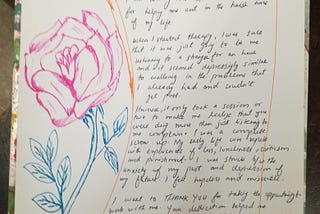 for helping me out in the hardest time
of my life.
When I started therapy, I was sure
that it was just going to be me
whining to a stranger for an hour
and it seemed depressingly similar
to wallowing in the problems that
I already had and couldn't
get past.
However, it only took a session or
two to make me realize that you
were doing more than just listening to
me complain. I was a complete
screw up. My early life was
with experiences of loss, loneliness, criticism
and punishment. I was struck b/w the
anxiety of my past and depression of
my future. I felt hopeless and miserable.
I want to THANK YOU for taking the opportunity to
work with me. Your dedication helped me